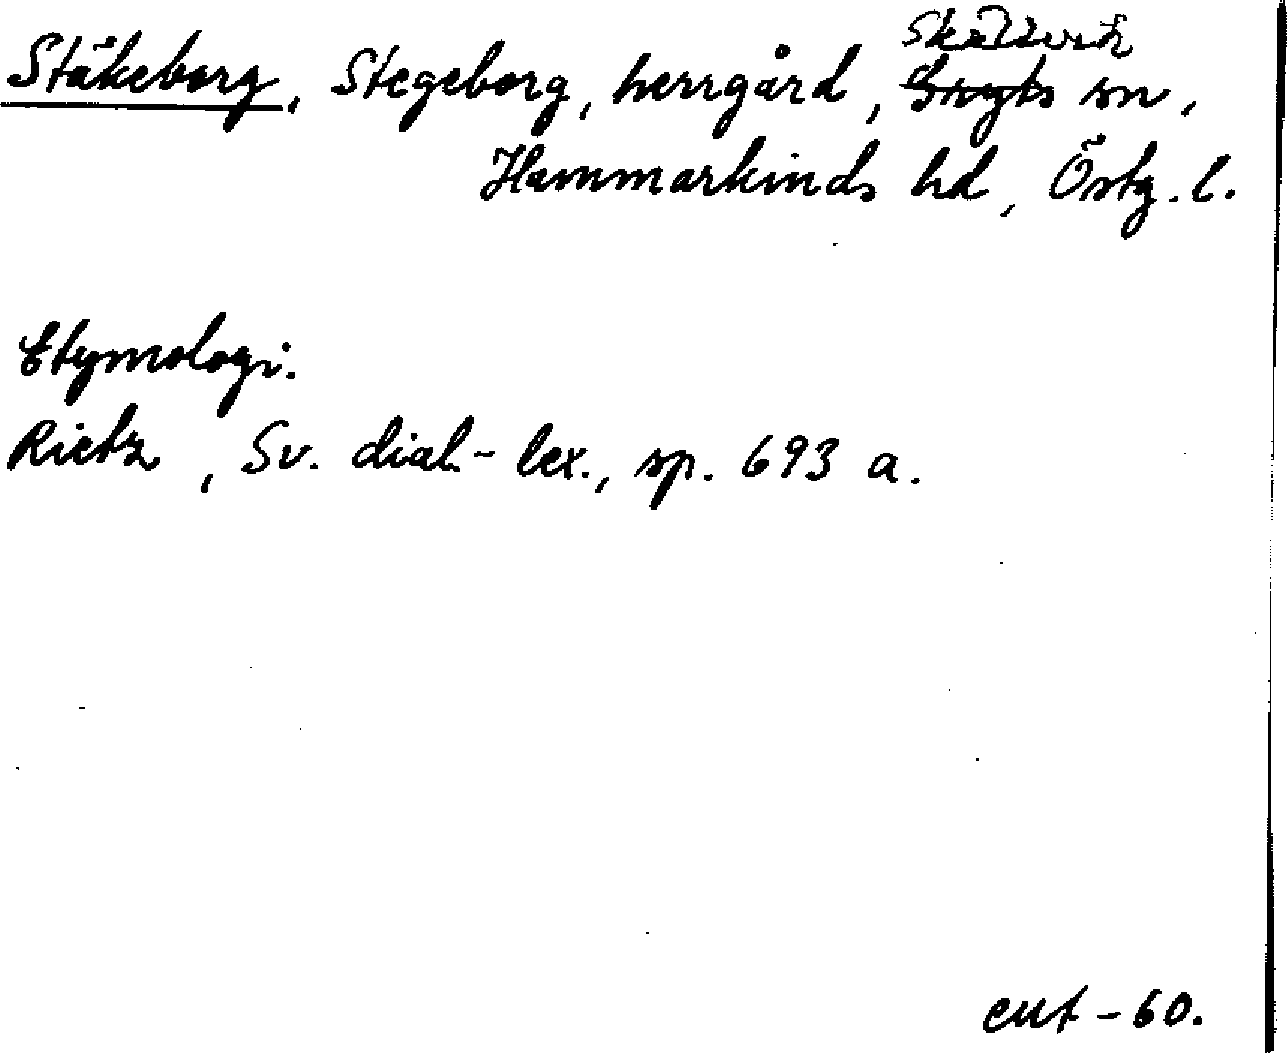 Skällvik
Stäkeborg, Stegeborg, herrgård, Gryts sn,
Hammarkinds hd, Östg. l.
Etymologi.
Rietz, Sv. dial-lex., sp. 693 a.
cut-60.